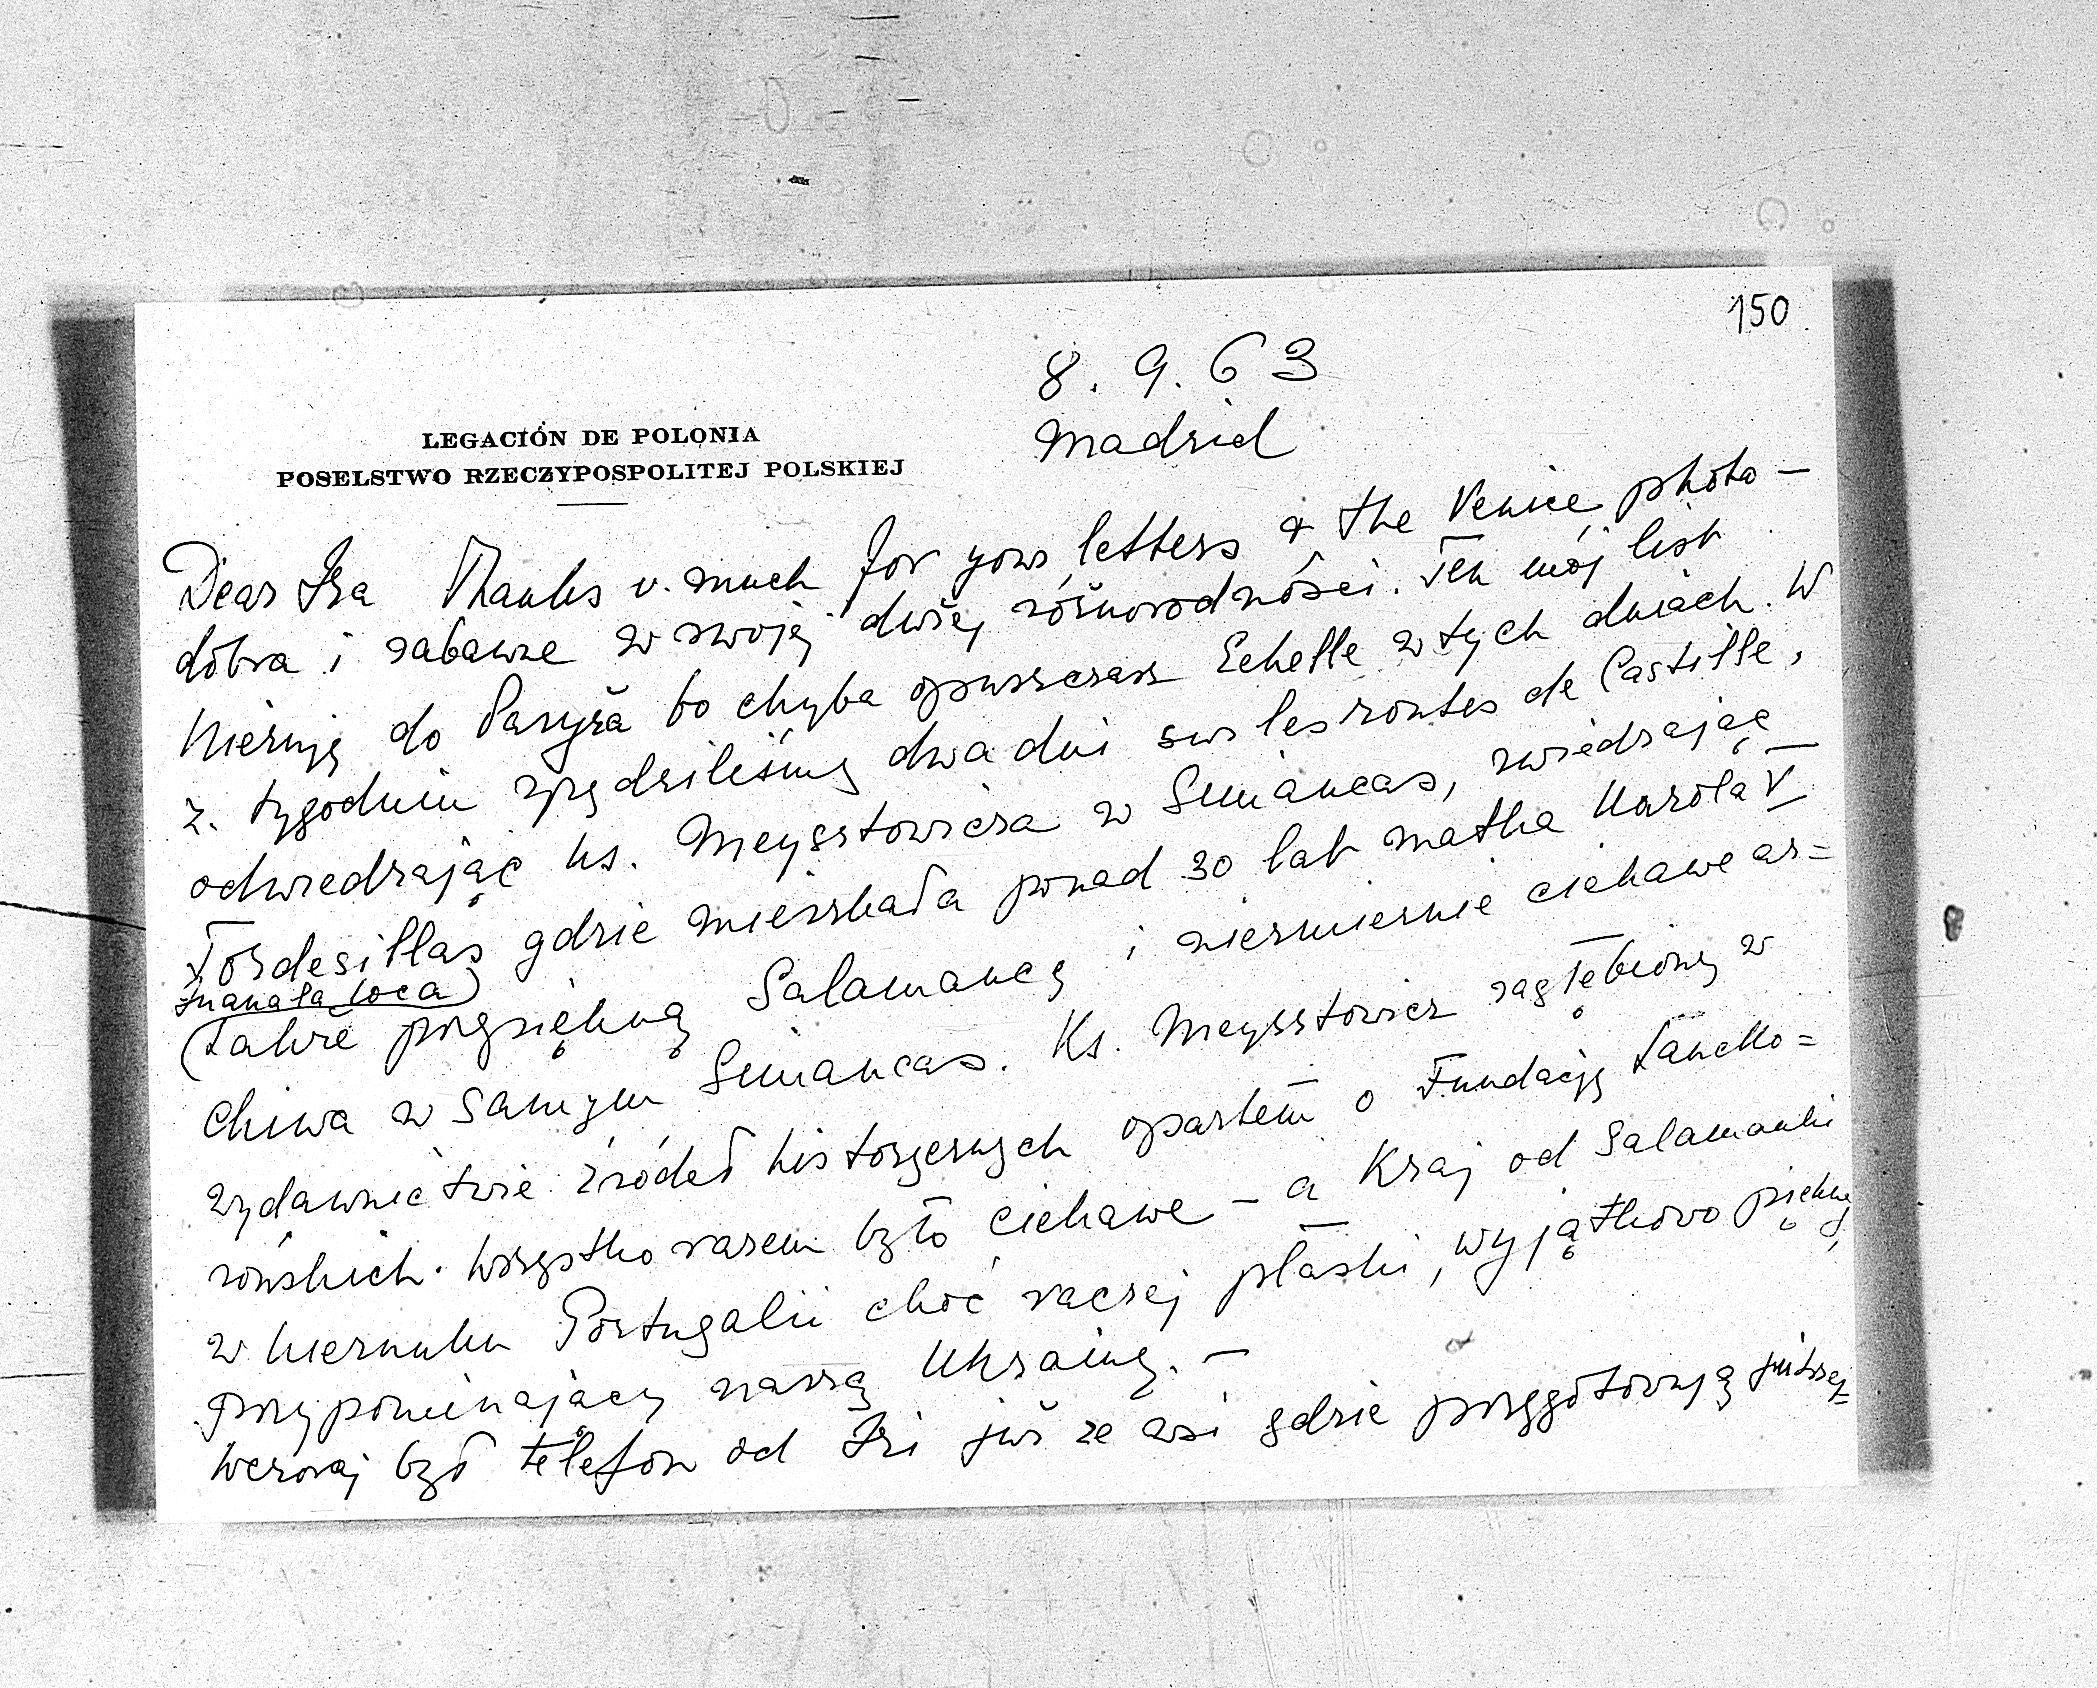 150
8. 9. 63
Madrid
LEGACIÓN DE POLONIA
POSELSTWO RZECZYPOSPOLITEJ POLSKIEJ
Dear Iza Thanks v. much for your letters & the Venice photo –
dobra i zabawne w swojej dużej różnorodności. Ten mój list
kieruję do Paryża bo chyba opuszczasz Echelle w tych dniach. W
z. tygodniu spędziliśmy dwa dni sur les routes de Castille,
odwiedzając ks. Meysztowicza w Simancas, zwiedzając
Tordesillas gdzie mieszkała ponad 30 lat matka Karola V
Juana la Loca)
(także przepiękną Salamancę i niezmiernie ciekawe ar=
chiwa w samym Simancas. Ks. Meysztowicz zagłębiony w
wydawnictwie źródeł historycznych opartem o Fundację Lancko=
rońskich. Wszystko razem było ciekawe – a Kraj od Salamanki
w kierunku Portugalii choć raczej płaski, wyjątkowo piękny,
przypominający naszą Ukrainę. –
Wczoraj był telefon od Izi już ze wsi gdzie przygotowują